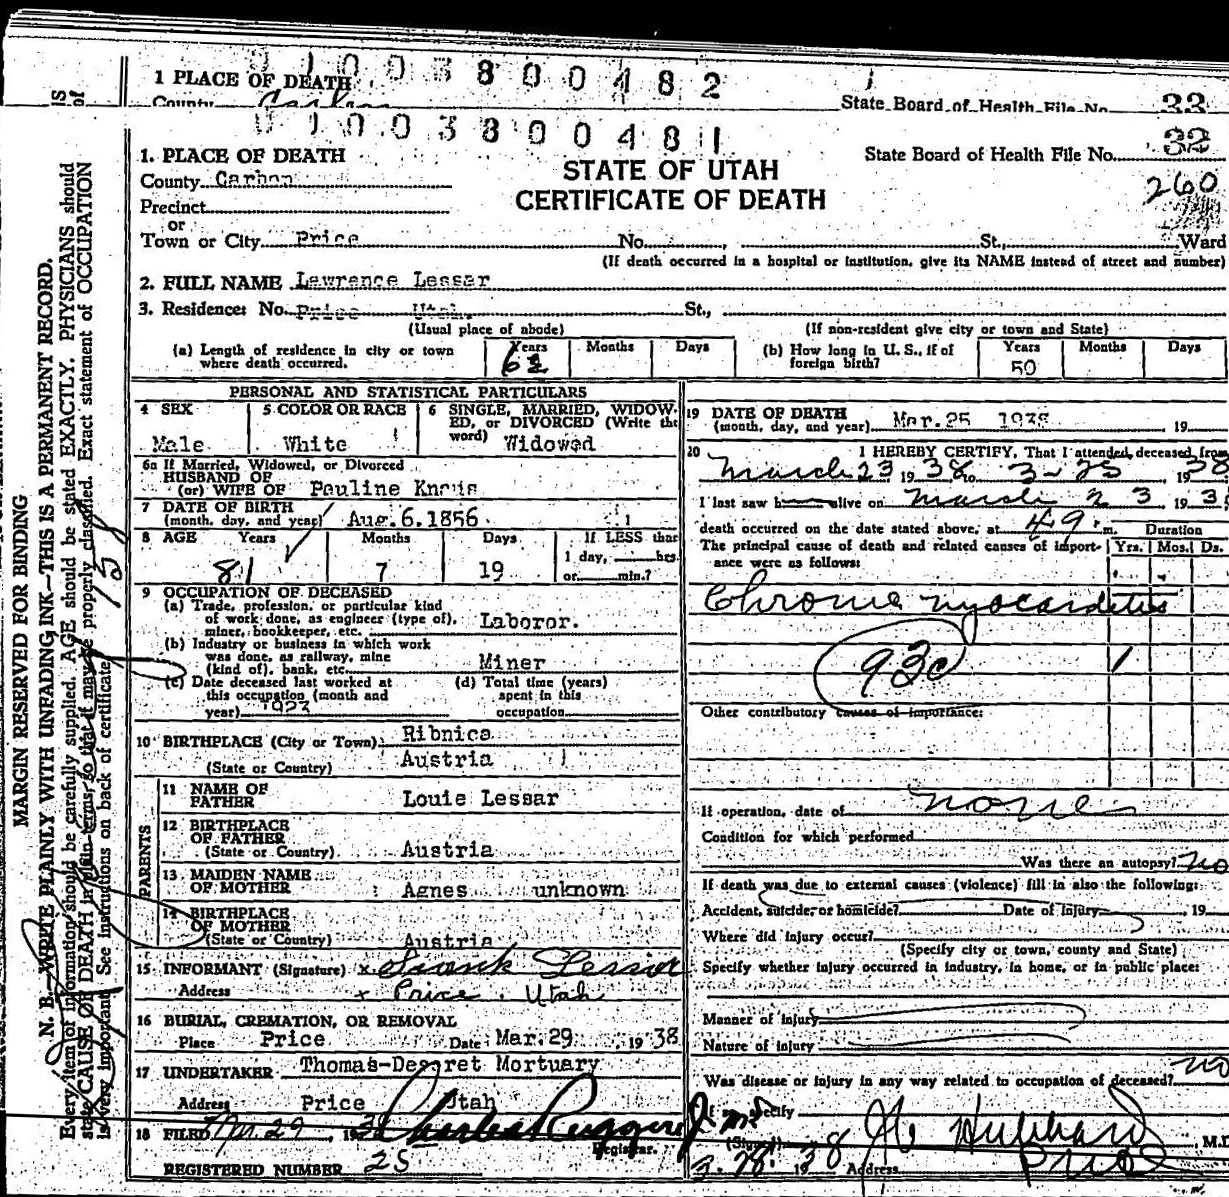 0100380048 2
1 PLACE OF DEATH
County Carbon
State Board of Health File No. 33
0100380048 1
1. PLACE OF DEATH
County Carbon
Precinct
or
Town or City Price No. , St., Ward
STATE OF UTAH
CERTIFICATE OF DEATH
State Board of Health File No. 32
260
(If death occurred in a hospital or institution, give its NAME instead of street and number)
2. FULL NAME Lawrence Lessar
3. Residence: No. Price Utah St.,
(Usual place of abode) (If non-resident give city or town and State)
(a) Length of residence in city or town
where death occurred.
Years Months Days
(b) How long in U. S., if of
foreign birth?
Years Months Days
50
PERSONAL AND STATISTICAL PARTICULARS
4 SEX
Male
5 COLOR OR RACE
White
6 SINGLE, MARRIED, WIDOW-
ED, or DIVORCED (Write the
word) Widowed
6a If Married, Widowed, or Divorced
HUSBAND OF
(or) WIFE OF Pauline
7 DATE OF BIRTH
(month, day, and year) Aug.6.1856
8 AGE Years Months Days If LESS than
1 day, hrs.
or min.?
81 7 19
9 OCCUPATION OF DECEASED
(a) Trade, profession, or particular kind
of work done, as engineer (type of),
miner, bookkeeper, etc. Laboror.
(b) Industry or business in which work
was done, as railway, mine
(kind of), bank, etc. Miner
(c) Date deceased last worked at
this occupation (month and
year) 1923
(d) Total time (years)
spent in this
occupation
10 BIRTHPLACE (City or Town) Ribnica
(State or Country) Austria
PARENTS
11 NAME OF
FATHER Louie Lessar
12 BIRTHPLACE
OF FATHER
(State or Country) Austria
13 MAIDEN NAME
OF MOTHER Agnes unknown
14 BIRTHPLACE
OF MOTHER
(State or Country) Austria
15 INFORMANT (Signature) x Frank Lessar
Address x Price, Utah
16 BURIAL, CREMATION, OR REMOVAL
Place Price Date Mar.29 , 19 38
17 UNDERTAKER Thomas-Deseret Mortuary
Address Price Utah
18 FILED Mar. 29 , 1938 Charles Ruggeri
Registrar.
REGISTERED NUMBER 25
19 DATE OF DEATH
(month, day, and year) Mar.25 1938 , 19
20 I HEREBY CERTIFY, That I attended deceased from
March 23 19 38 to 3-25 , 19 38
I last saw h alive on March 23 , 19 3
death occurred on the date stated above, at m. Duration
The principal cause of death and related causes of import-
ance were as follows:
Yrs. Mos. Ds.
Chronic myocarditis
93c
1
Other contributory causes of importance:
If operation, date of none
Condition for which performed
Was there an autopsy? no
If death was due to external causes (violence) fill in also the following:
Accident, suicide, or homicide? Date of injury , 19
Where did injury occur?
(Specify city or town, county and State)
Specify whether injury occurred in industry, in home, or in public place:
Manner of injury
Nature of injury
Was disease or injury in any way related to occupation of deceased? no
If so, specify
(Signed) Hubbard , M.D.
3.28.1938 Address Price
MARGIN RESERVED FOR BINDING
N. B.—WRITE PLAINLY WITH UNFADING INK—THIS IS A PERMANENT RECORD.
Every item of information should be carefully supplied. AGE should be stated EXACTLY. PHYSICIANS should
state CAUSE OF DEATH in plain terms, so that it may be properly classified. Exact statement of OCCUPATION
is very important. See instructions on back of certificate.